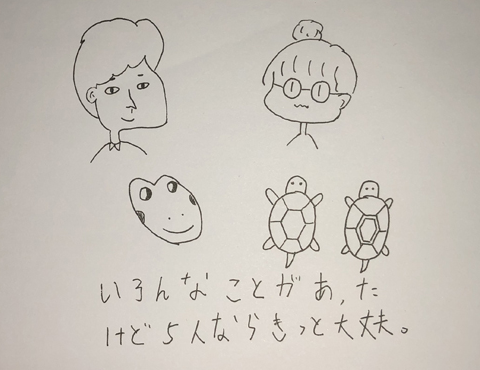 いろんなことがあった
けど5人ならきっと大丈夫。